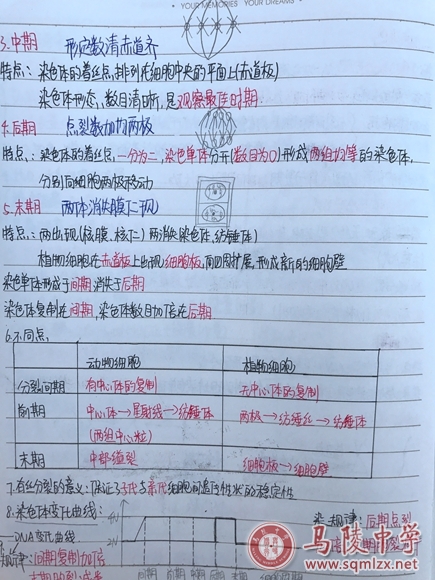 YOUR MEMORIES YOUR DREAMS
3.中期 形定数清赤道齐
特点:染色体的着丝点,排列在细胞中央的平面上(赤道板)
染色体形态,数目清晰,是观察最佳时期.
4.后期 点裂数加均两极
特点:染色体的着丝点,一分为二,染色单体分开(数目为0)形成两组均等的染色体,
分别向细胞两极移动
5.末期 两体消失膜仁现
特点:两出现(核膜、核仁)两消失(染色体,纺锤体)
植物细胞在赤道板上出现细胞板,向四周扩展,形成新的细胞壁
染色单体形成于间期消失于后期
染色体复制在间期,染色体数目加倍在后期
6.不同点:
动物细胞 植物细胞
分裂间期 有中心体的复制 无中心体的复制
前期 中心体→星射线→纺锤体 两极→纺锤丝→纺锤体
(两组中心粒)
末期 中部缢裂 细胞板→细胞壁
7.有丝分裂的意义:保证了子代与亲代细胞间遗传性状的稳定性
8.染色体变化曲线: 4N 染 规律:后期点裂
—DNA变化曲线 2N
规律:间期复制加倍
马陵中学
www.sqmlzx.net